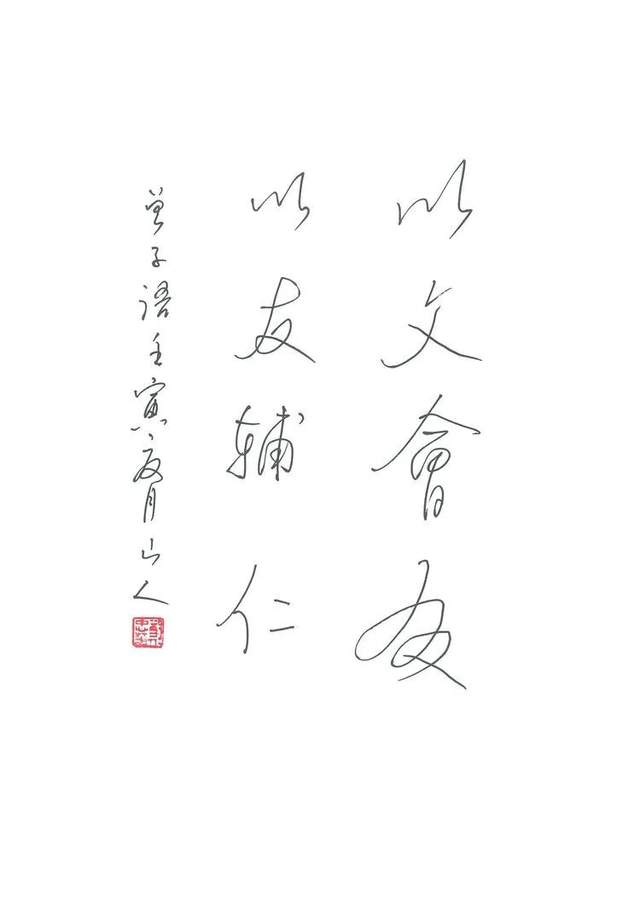 以文會友
以友輔仁
曾子語壬寅夏月山人